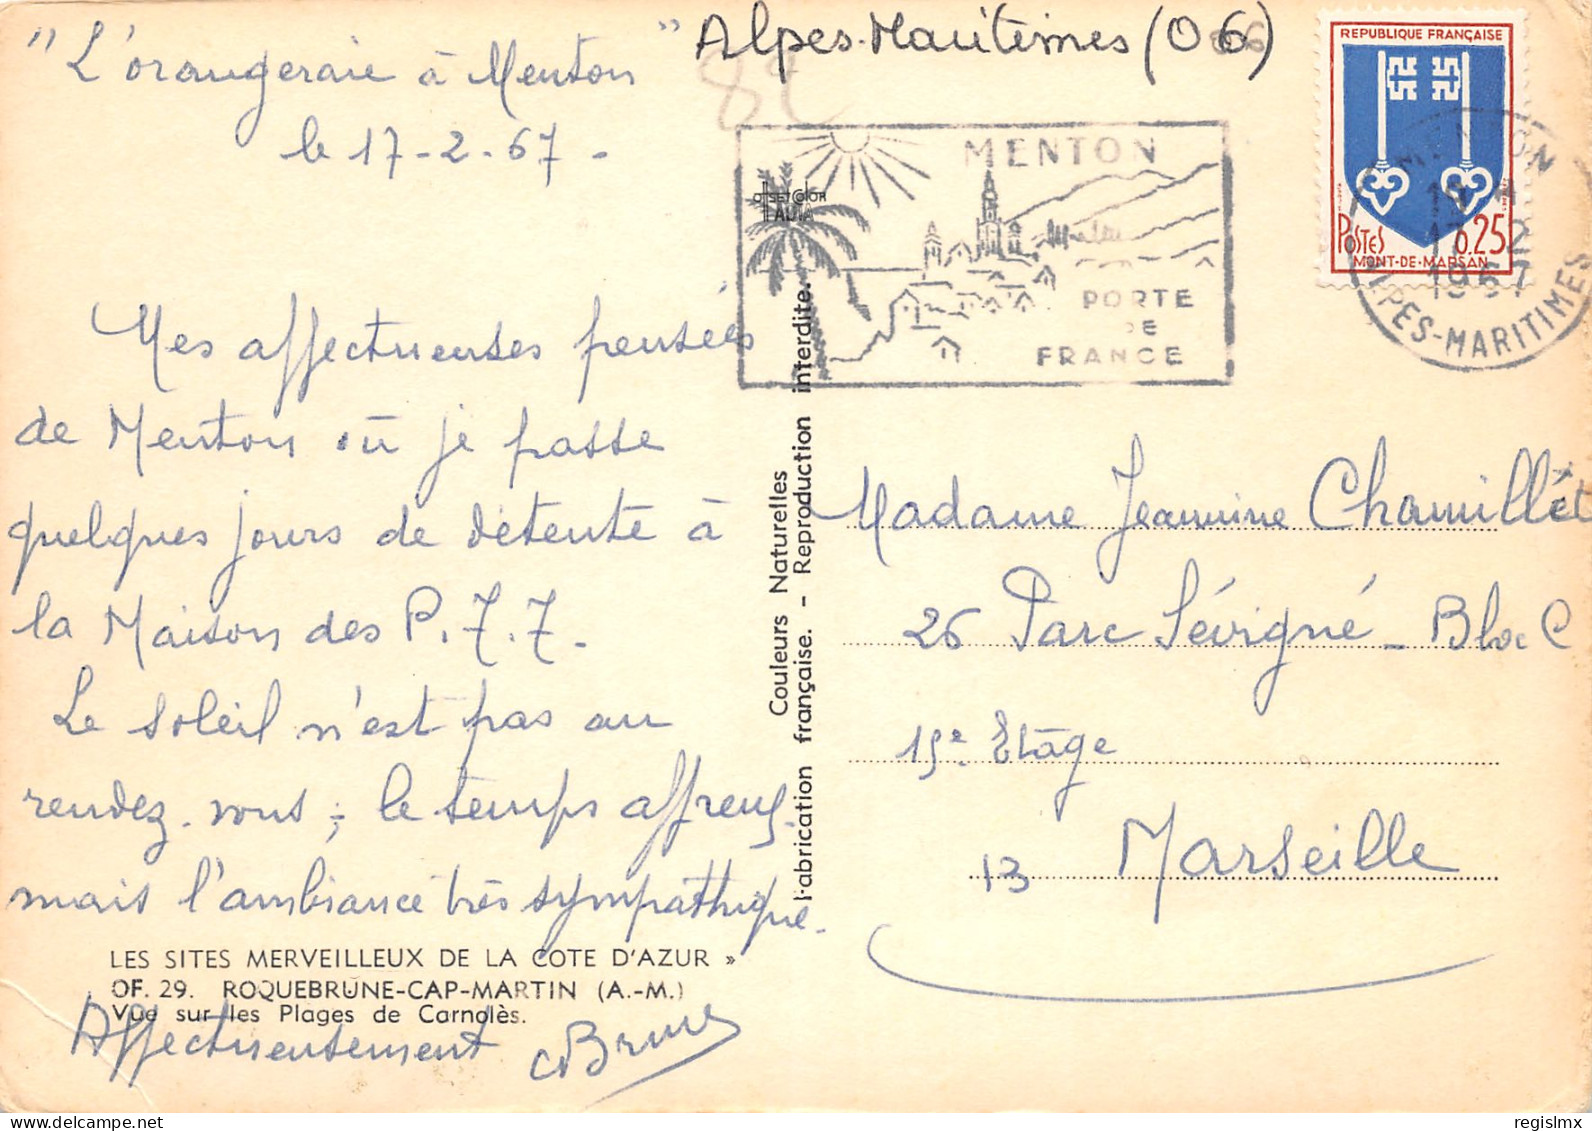 " L'orangeraie à Menton "
le 17-2-67 -
Alpes-Maritimes (06)
82
Mes affectueuses pensées
de Menton où je passe
quelques jours de détente à
la Maison des P.T.T. -
Le soleil n'est pas au
rendez-vous, le temps affreux
mais l'ambiance très sympathique.
LES SITES MERVEILLEUX DE LA COTE D'AZUR »
OF. 29. ROQUEBRUNE-CAP-MARTIN (A.-M.)
Vue sur les Plages de Carnolès.
Affectueusement
Couleurs Naturelles
Fabrication française. - Reproduction interdite.
MENTON
PORTE
DE
FRANCE
REPUBLIQUE FRANÇAISE
POSTES 0.25
MONT-DE-MARSAN
MENTON
17-2
1967
ALPES-MARITIMES
Madame Jeannine Chamillet
26 Parc Sévigné - Bloc C
15e Etage
13 Marseille
regislmx
delcampe.net